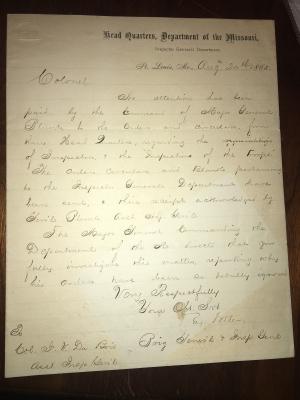 Head Quarters, Department of the Missouri,
Inspector General's Department.
St. Louis, Mo. Aug 20th 186
Colonel
No attention has been
paid by the Command of Major General
to the Orders and circulars from
these Head Quarters, regarding the
of Inspectors, & the Inspection of the Troops
The Orders Circulars and Blanks pertaining
to the Inspector Generals Department have
been sent, & their receipt acknowledged by
The Major General Commanding the
Department of the Mo directs that you
fully investigate this matter, reporting why
his orders have been so totally ignored
Very Respectfully
Your Obt Svt
Brig Genl & Insp Genl
To
Col.
Asst Insp Genl